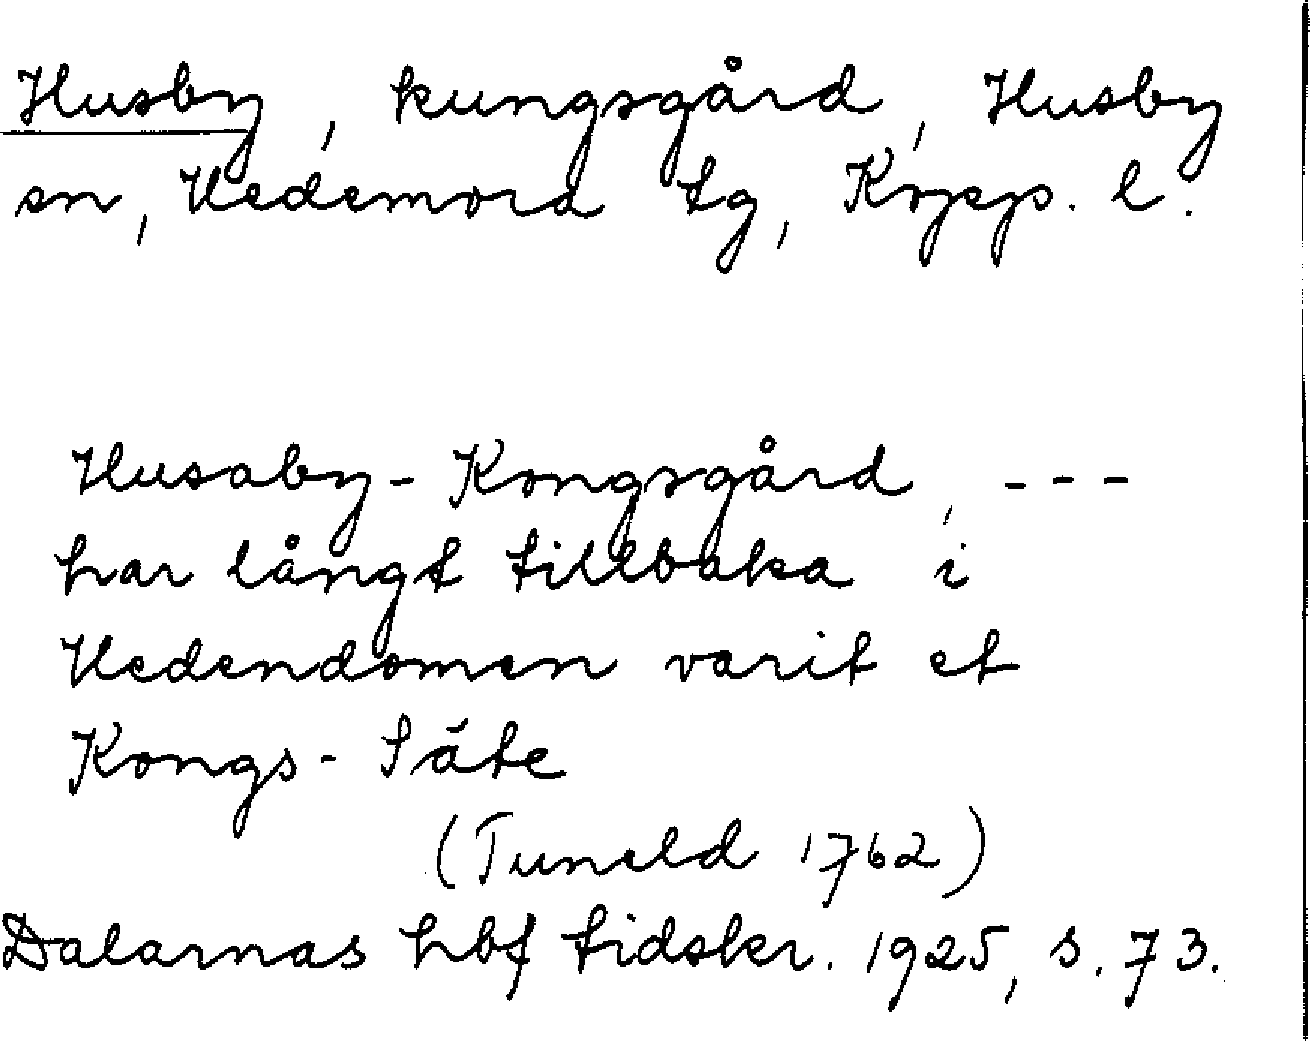 Husby, kungsgård, Husby
sn, Hedemora tg, Kopp. l.
Husaby-Kongsgård, ---
har långt tillbaka i
Hedendomen varit et
Kongs-Säte
(Tuneld 1762)
Dalarnas hbf tidskr. 1925, s. 73.